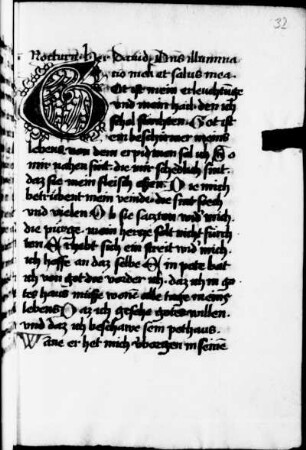 32
Nocturn. her david. Dns illumina
tio mea et salus mea.
Got ist mein erleuchtunge
und mein hail. den ich
schol furchten. Got ist
ein beschirmer meins
lebens. von dem erpidmen sal ich. So
mir nahen sint. die mir schedlich sint.
daz sie mein fleisch essen. Die mich
betrubent mein veinde. die sint siech
und vielen. Ob sie saczten wid mich.
die purge. mein hercze solt nicht furch
ten. Erhebt sich ein streit wid mich.
ich hoffe an daz selbe. Ein pete bat
ich von got die vorder ich. daz ich in go
tes haus musse wonen alle tage meins
lebens. Daz ich gesehe gotes willen.
und daz ich beschawe sein pethaus.
Wane er het mich vborgen in seinē